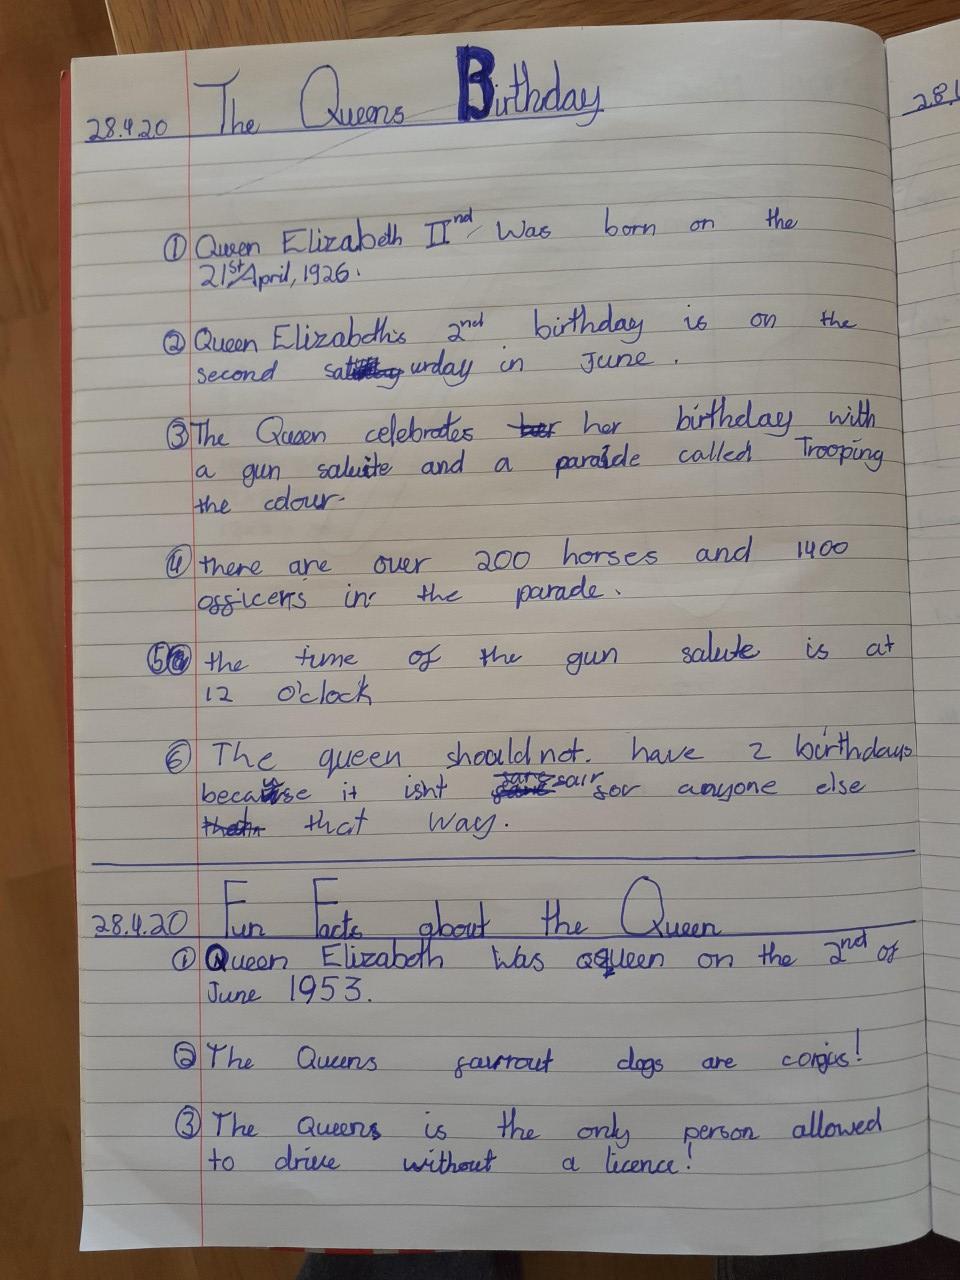 28.4.20 The Queens Birthday
28.
① Queen Elizabeth IInd Was born on the
21st April, 1926.
② Queen Elizabeth's 2nd birthday is on the
second saturday in June.
③ The Queen celebrates her birthday with
a gun salute and a parade called Trooping
the colour.
④ there are over 200 horses and 1400
officers in the parade.
⑤ the time of the gun salute is at
12 o'clock
⑥ The queen should not. have 2 birthdays
because it isnt fair for anyone else
that way.
28.4.20 Fun Facts about the Queen
① Queen Elizabeth Was queen on the 2nd of
June 1953.
② The Queens dogs are corgis!
③ The Queens is the only person allowed
to drive without a licence!